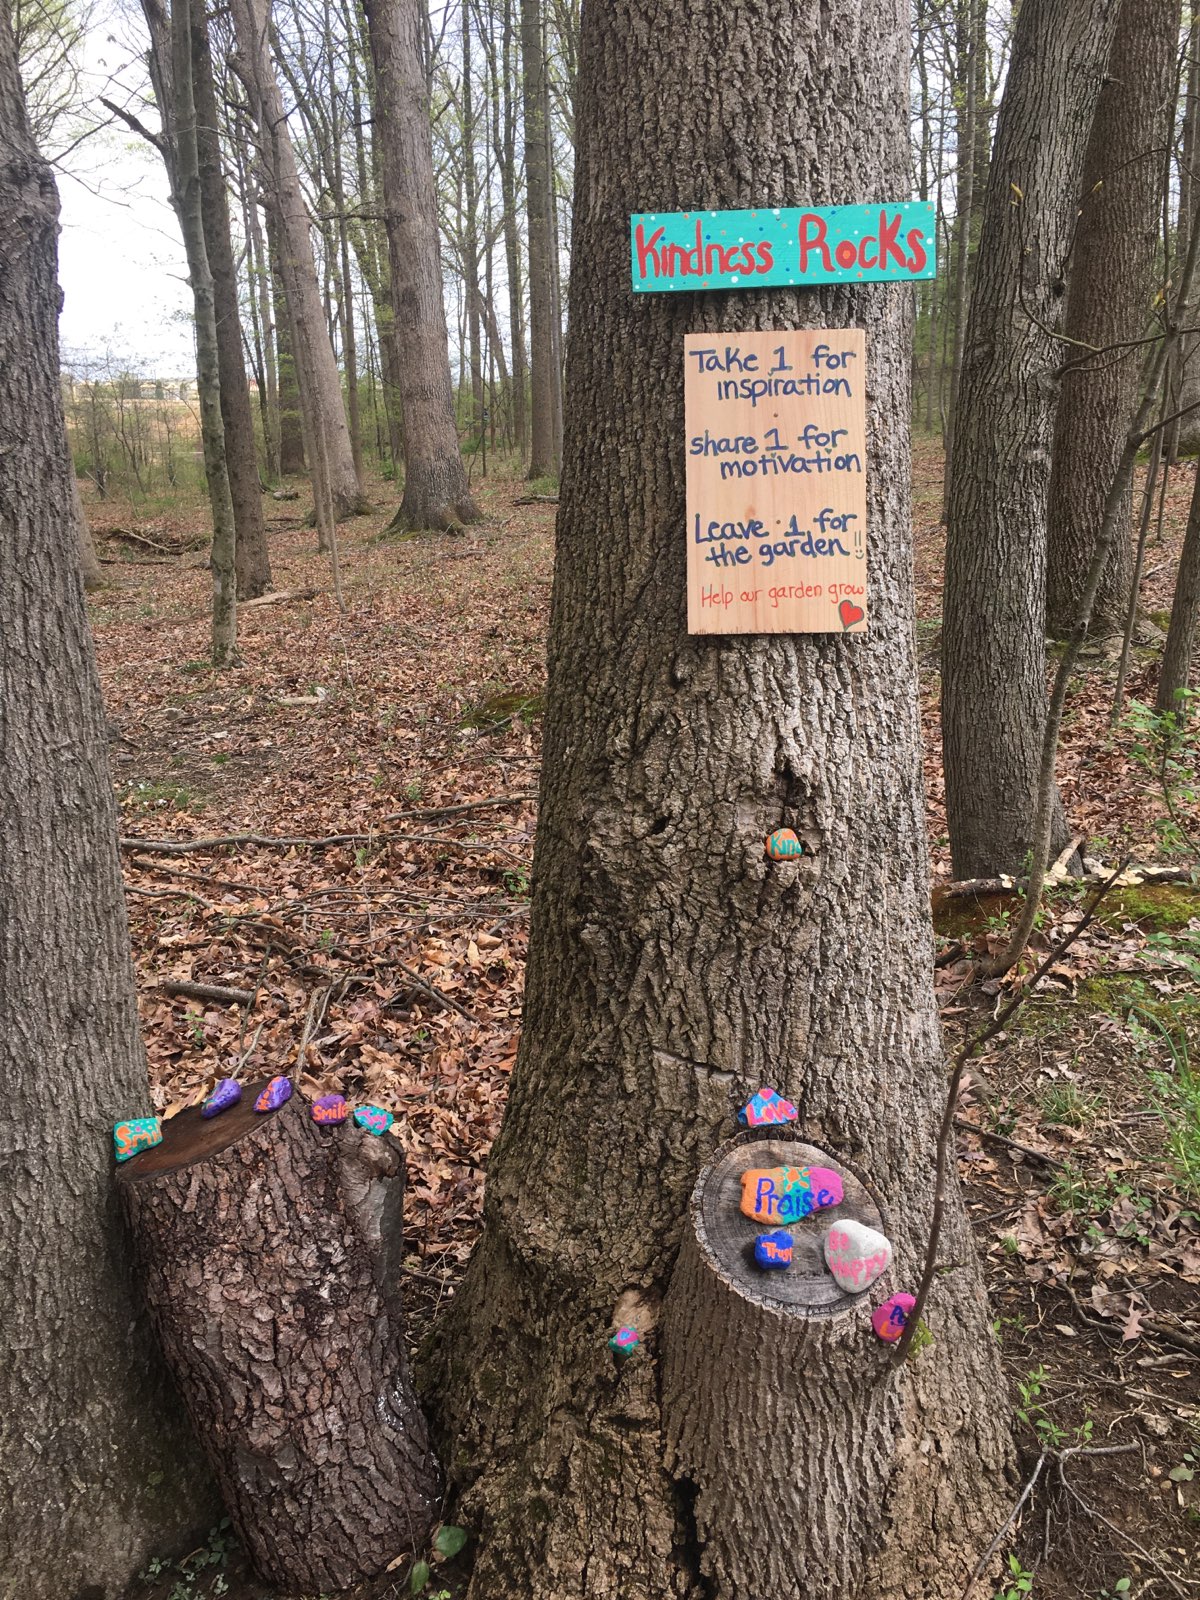 Kindness Rocks
Take 1 for
inspiration
share 1 for
motivation
Leave 1 for
the garden !!
Help our garden grow
Kind
Love
Smile
Praise
Trust
Be
Happy